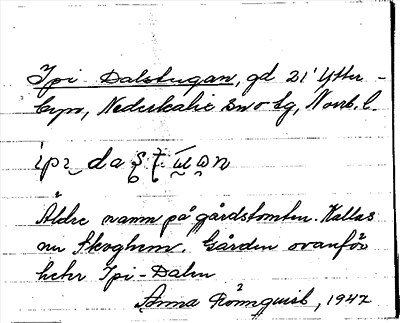 Ipi-Dalstugan, gd 21 Ytter-
byn, Nederkalix sn o tg, Norrb. l.
Äldre namn på gårdstomten. Kallas
nu Skoghem. Gården ovanför
heter Ipi-Dalen
Anna Rönnquist, 1947